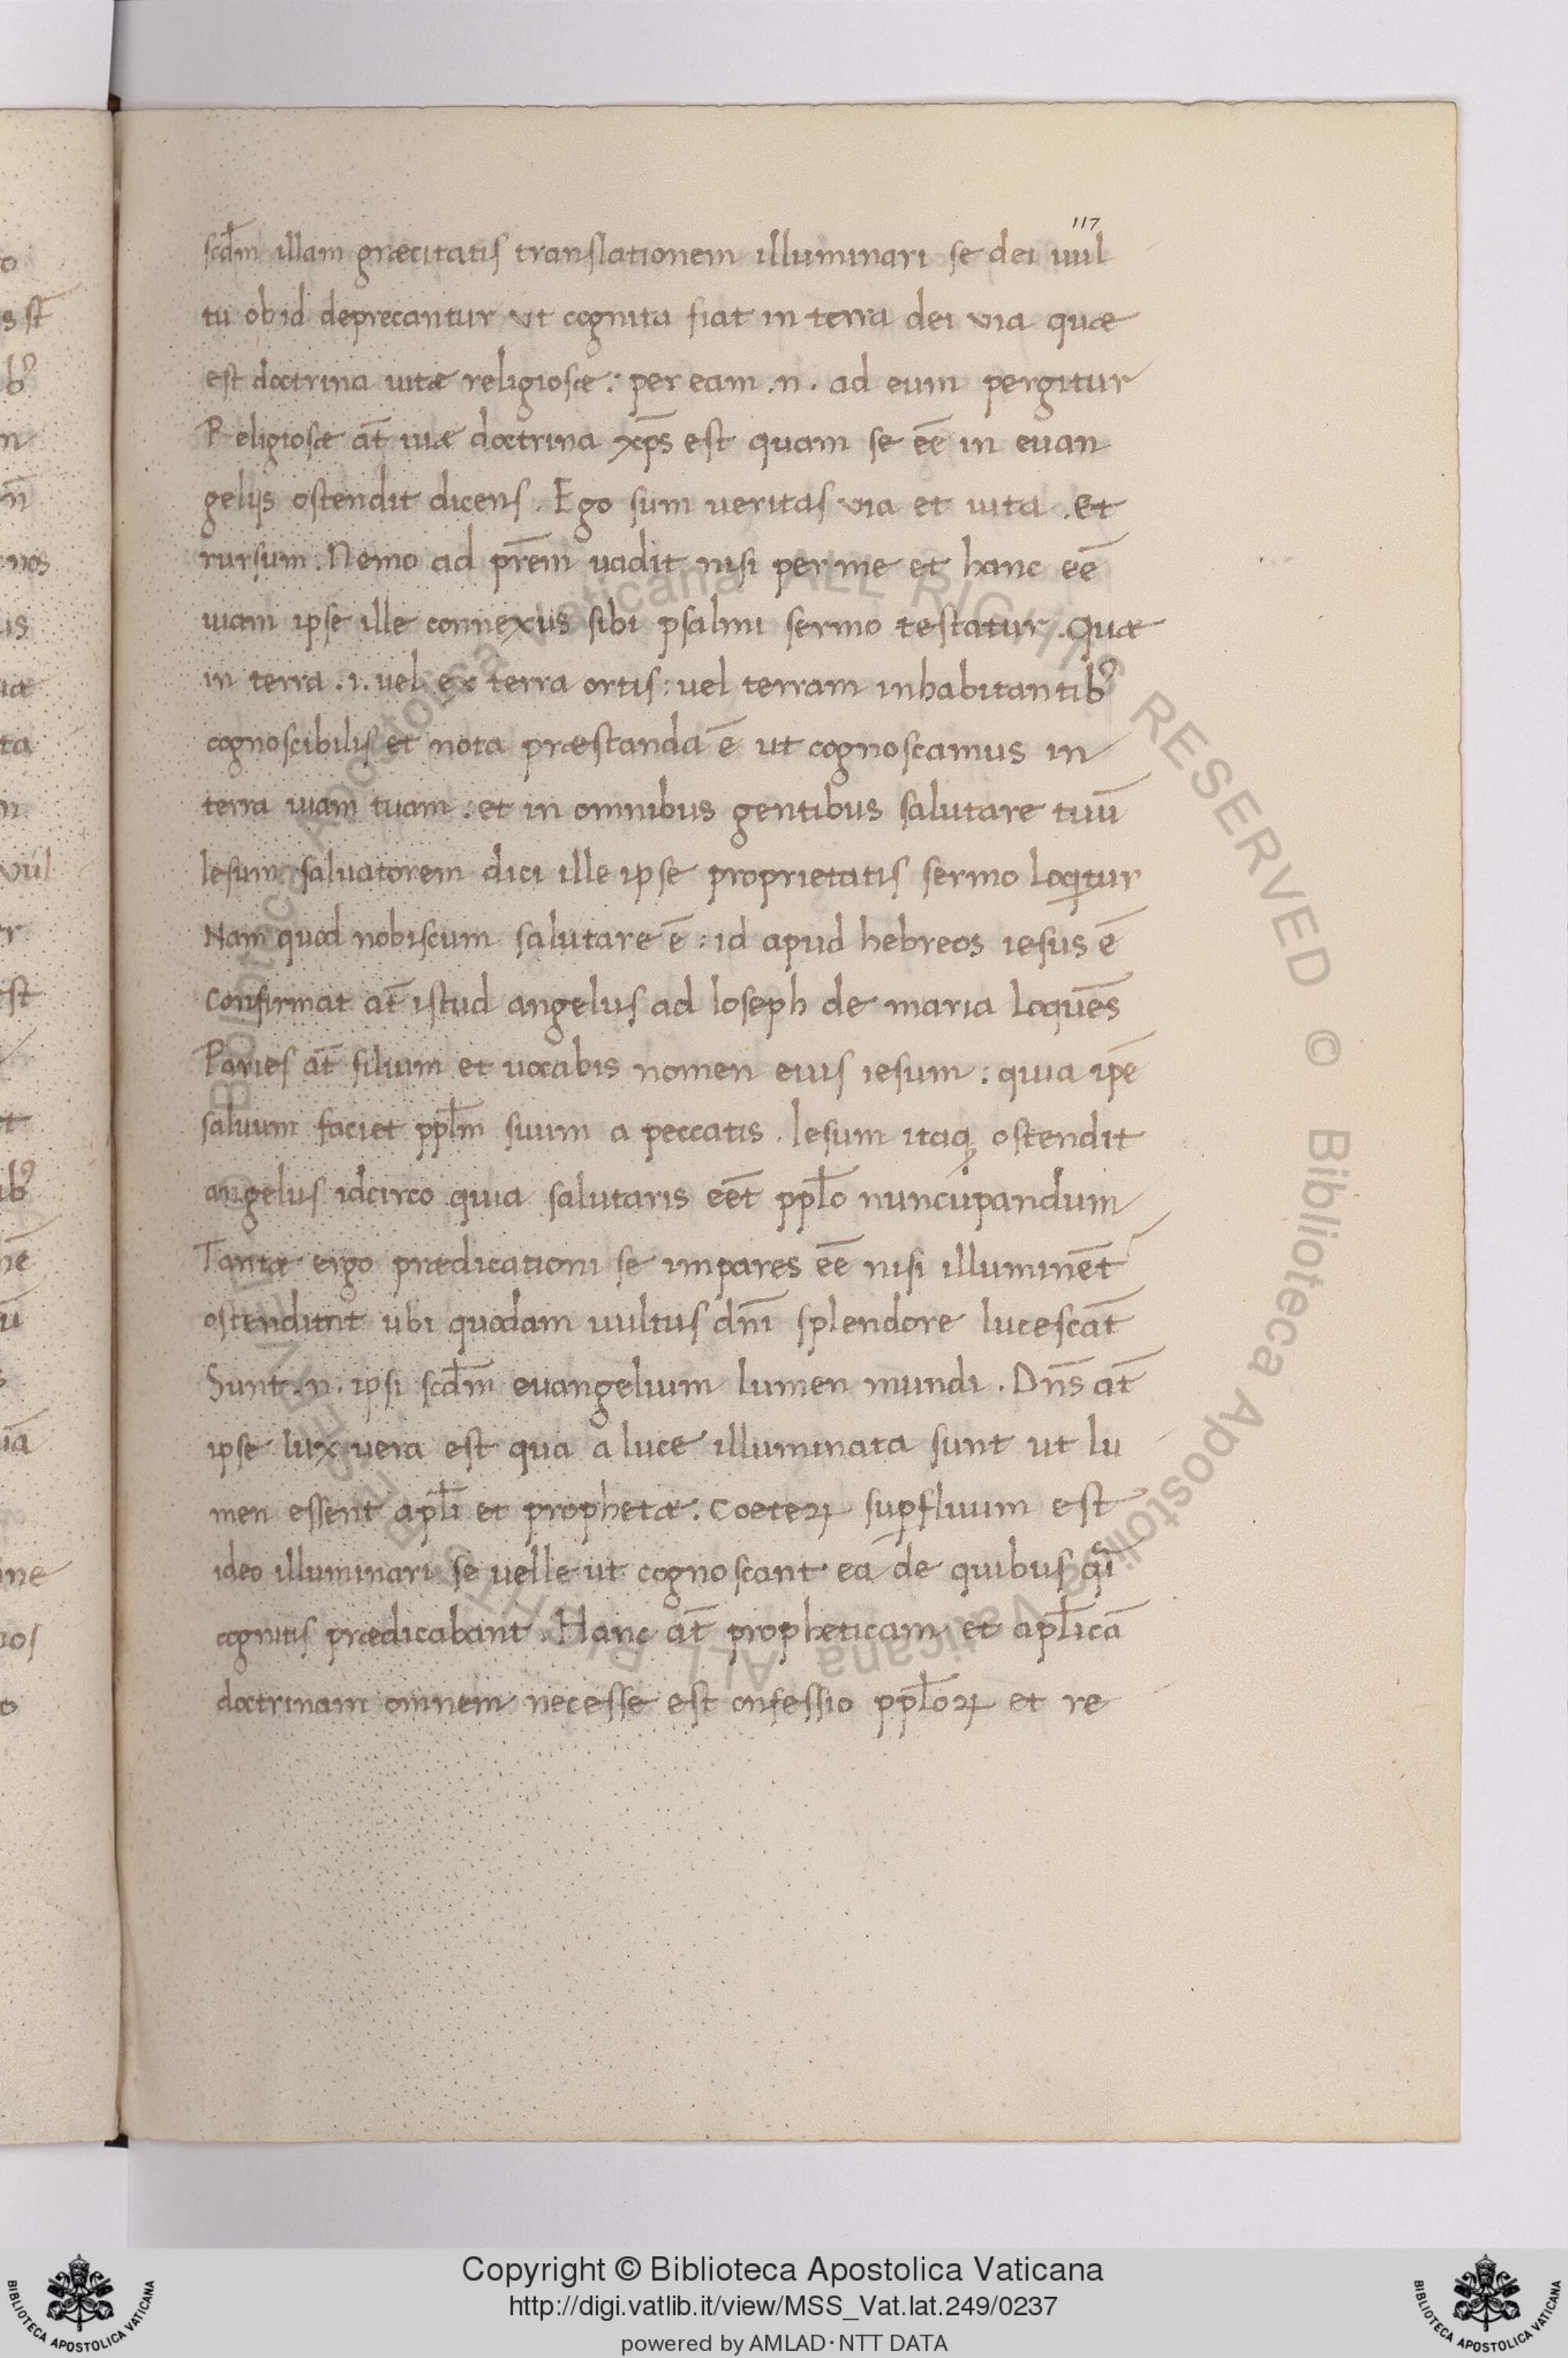 117
scd̄m illam græcitatis translationem illuminari se dei uul
tu ob id deprecantur vt cognita fiat in terra dei via quæ
est doctrina uitæ religiosæ: per eam .n. ad eum pergitur
Religiosæ āt uiæ doctrina xp̄s est quam se eē in euan
gelijs ostendit dicens. Ego sum ueritas via et uita. Et
rursum. Nemo ad pr̄em uadit nisi per me et hanc eē
uiam ipse ille connexus sibi psalmi sermo testatur. Quæ
in terra .i. uel ex terra ortis: uel terram inhabitantibꝰ
cognoscibilis et nota præstanda ē ut cognoscamus in
terra uiam tuam: et in omnibus gentibus salutare tuū
Iesum saluatorem dici ille ipse proprietatis sermo loqͥtur
Nam quod nobiscum salutare ē: id apud hebreos iesus ē
Confirmat āt istud angelus ad Ioseph de maria loquēs
Paries āt filium et uocabis nomen eius iesum: quia ip̄e
saluum faciet ppl̄m suum a peccatis. Iesum itaqꝫ ostendit
angelus idcirco quia salutaris eēt ppl̄o nuncupandum
Tantæ ergo prædicationi se impares eē nisi illuminēt
ostendunt ubi quodam uultus dn̄i splendore lucescāt
Sunt .n. ipsi scd̄m euangelium lumen mundi. Dn̄s āt
ipse lux uera est qua a luce illuminata sunt ut lu
men essent apl̄i et prophetæ. Coeteꝝ suꝑfluum est
ideo illuminari se uelle ut cognoscant ea de quibus qͣi
cognitis prædicabant. Hanc āt propheticam et apl̄icā
doctrinam omnem necesse est onfessio ppl̄oꝝ et re
Copyright © Biblioteca Apostolica Vaticana
http://digi.vatlib.it/view/MSS_Vat.lat.249/0237
powered by AMLAD·NTT DATA